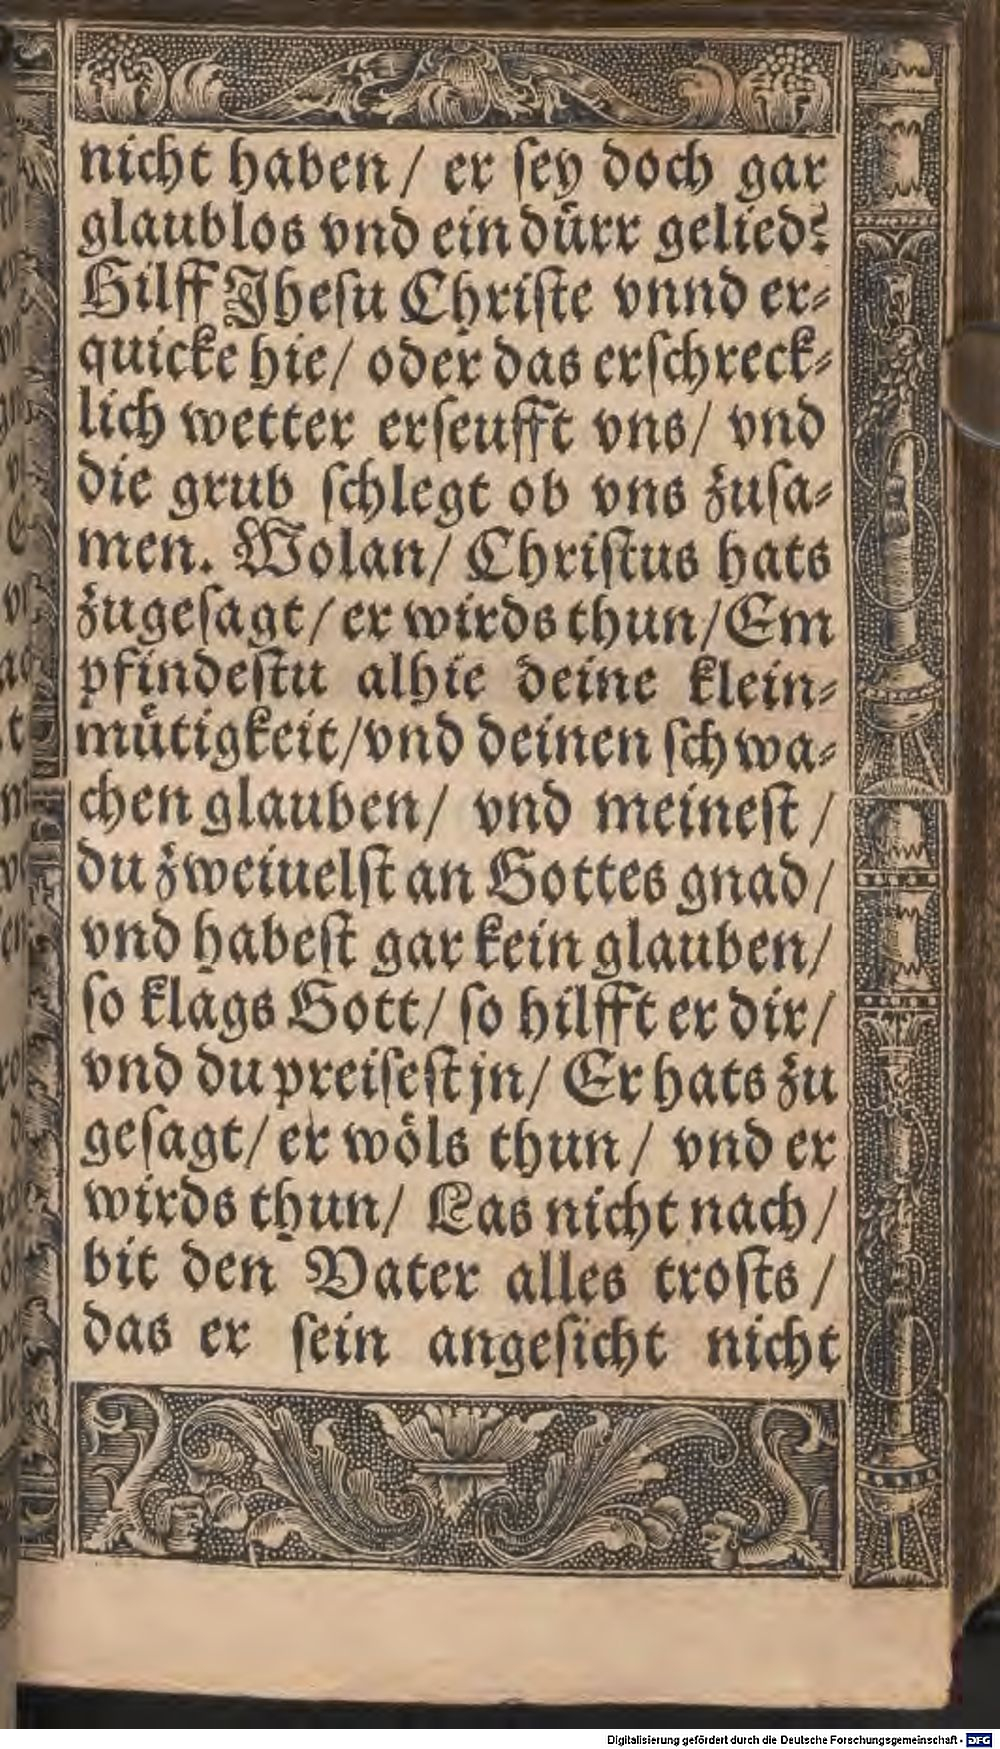 nicht haben / er ſey doch gar
glaublos vnd ein duͤrr gelied?
Hilff Jheſu Chriſte vnnd er⸗
quicke hie / oder das erſchreck⸗
lich wetter erſeufft vns / vnd
die grub ſchlegt ob vns zuſa⸗
men. Wolan / Chriſtus hats
zugeſagt / er wirds thun / Em
pfindeſtu alhie deine klein⸗
muͤtigkeit / vnd deinen ſchwa⸗
chen glauben / vnd meineſt /
du zweiuelſt an Gottes gnad /
vnd habeſt gar kein glauben /
ſo klags Gott / ſo hilfft er dir /
vnd du preiſeſt jn / Er hats zu
geſagt / er woͤls thun / vnd er
wirds thun / Las nicht nach /
bit den Vater alles troſts /
das er ſein angeſicht nicht
Digitalisierung gefördert durch die Deutsche Forschungsgemeinschaft - DFG